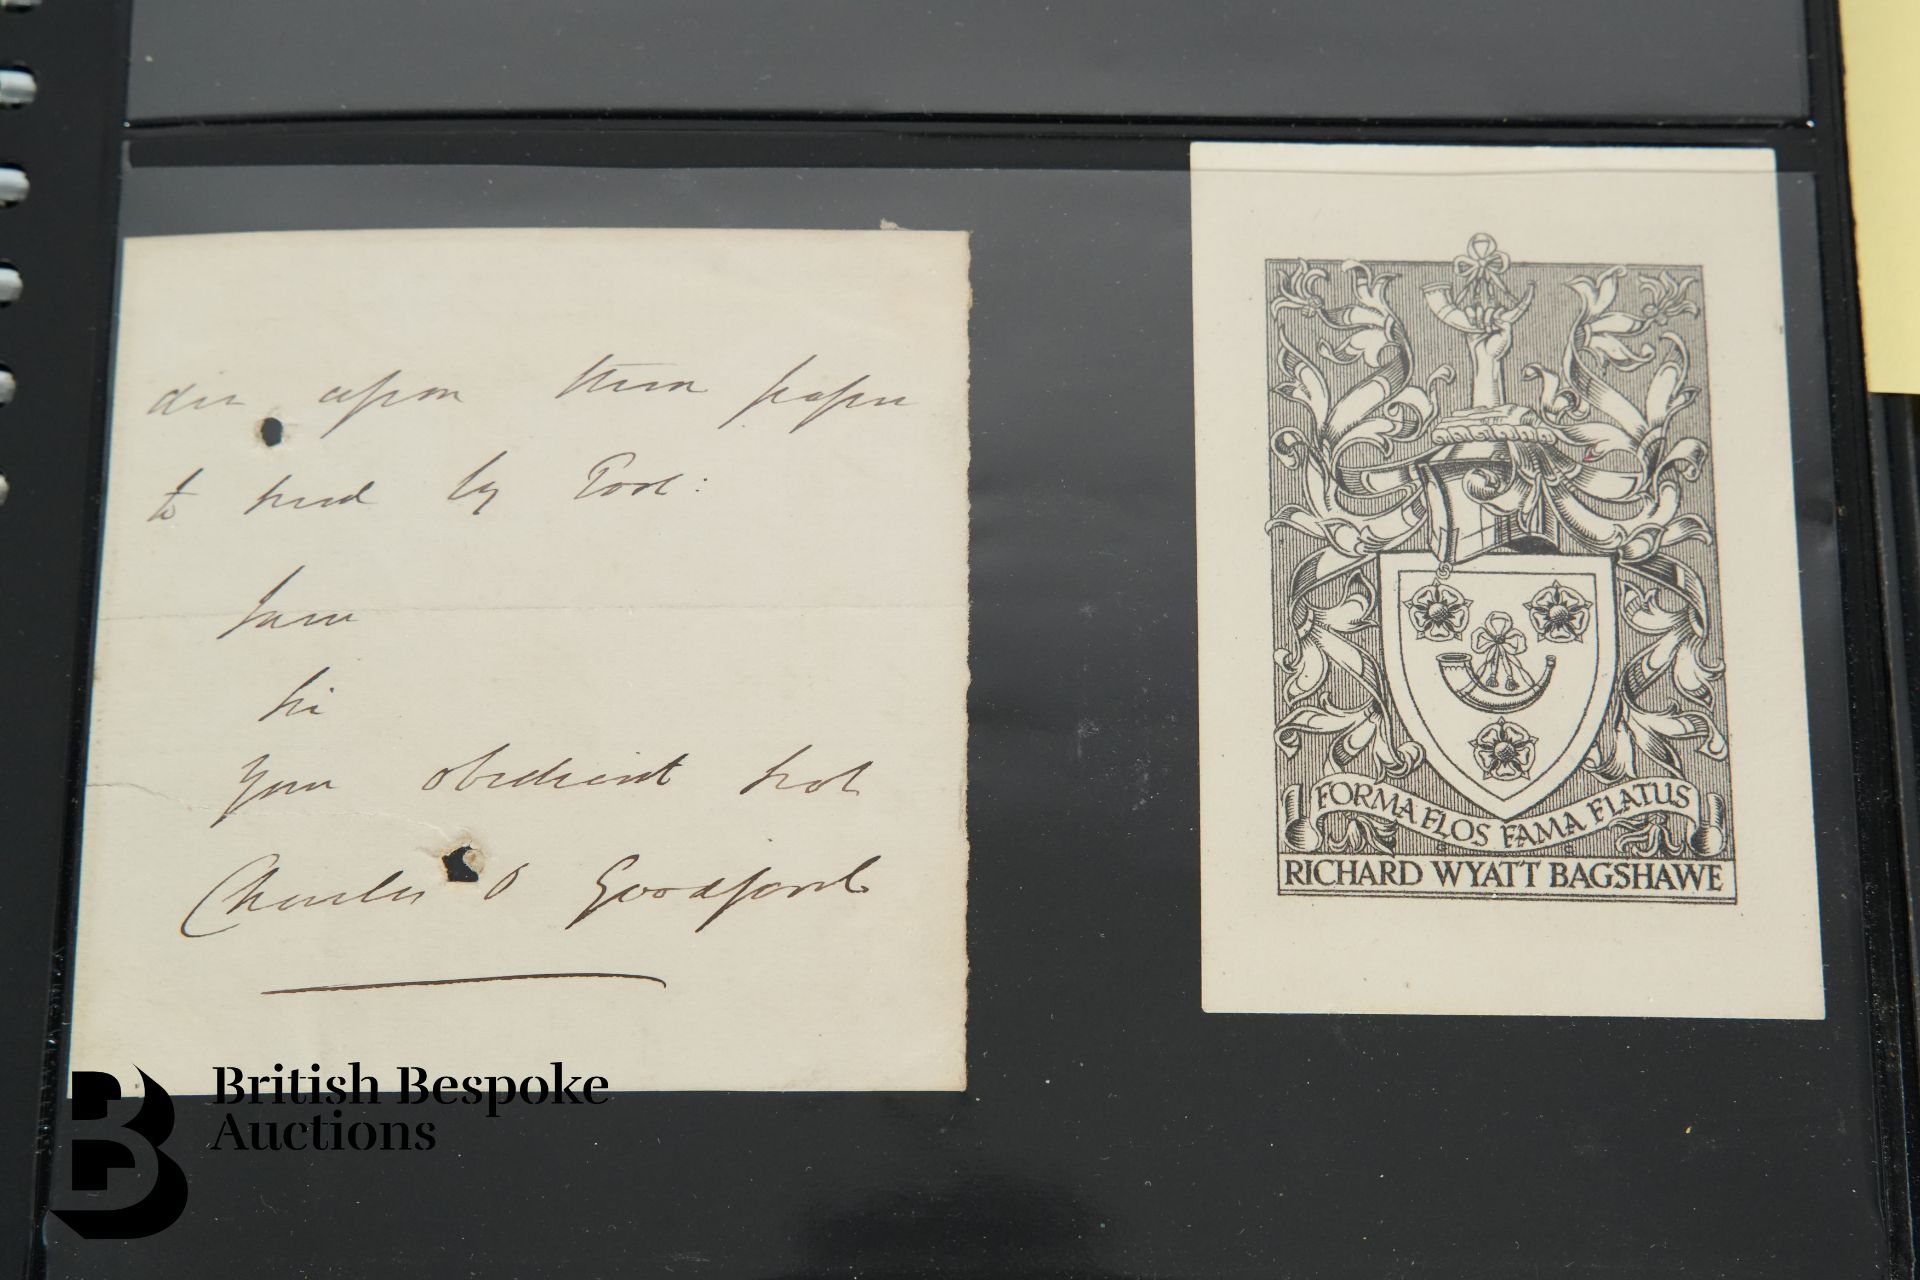 upon them paper
to send by Post:
I am
Sir
Your obedient Servt
Charles O Goodford
FORMA FLOS FAMA FLATUS
RICHARD WYATT BAGSHAWE
British Bespoke
Auctions